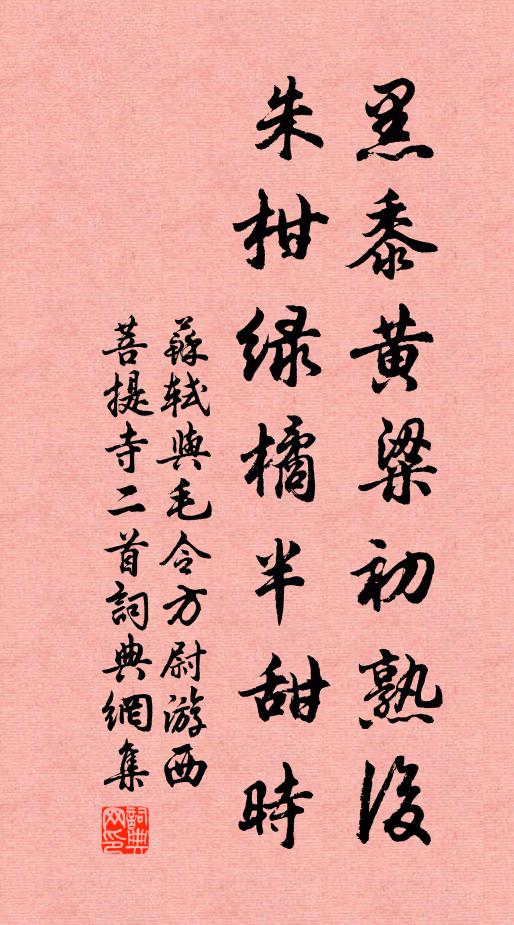 黑黍黄粱初熟後
朱柑綠橘半甜時
蘇軾與毛令方尉游西
菩提寺二首詞典網集
詞典網印